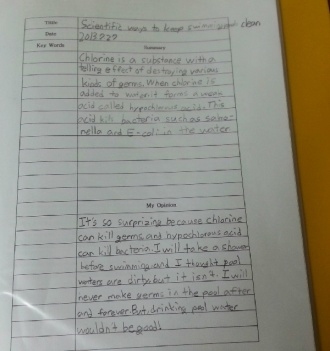 Title Scientific ways to keep swim pool clean
Date 2013.9.29
Key Words Summary
Chlorine is a substance with a
telling effect of destroying various
kinds of germs. When chlorine is
added to water it forms a weak
acid called hypochlorous acid. This
acid kills bacteria such as salmo-
nella and E-coli in the water
My Opinion
It's so surprizing because chlorine
can kill germs, and hypochlorous acid
can kill bacteria. I will take a shower
before swimming and I thought pool
waters are dirty but it isn't. I will
never make germs in the pool after
and forever. But, drinking pool water
wouldn't be good!